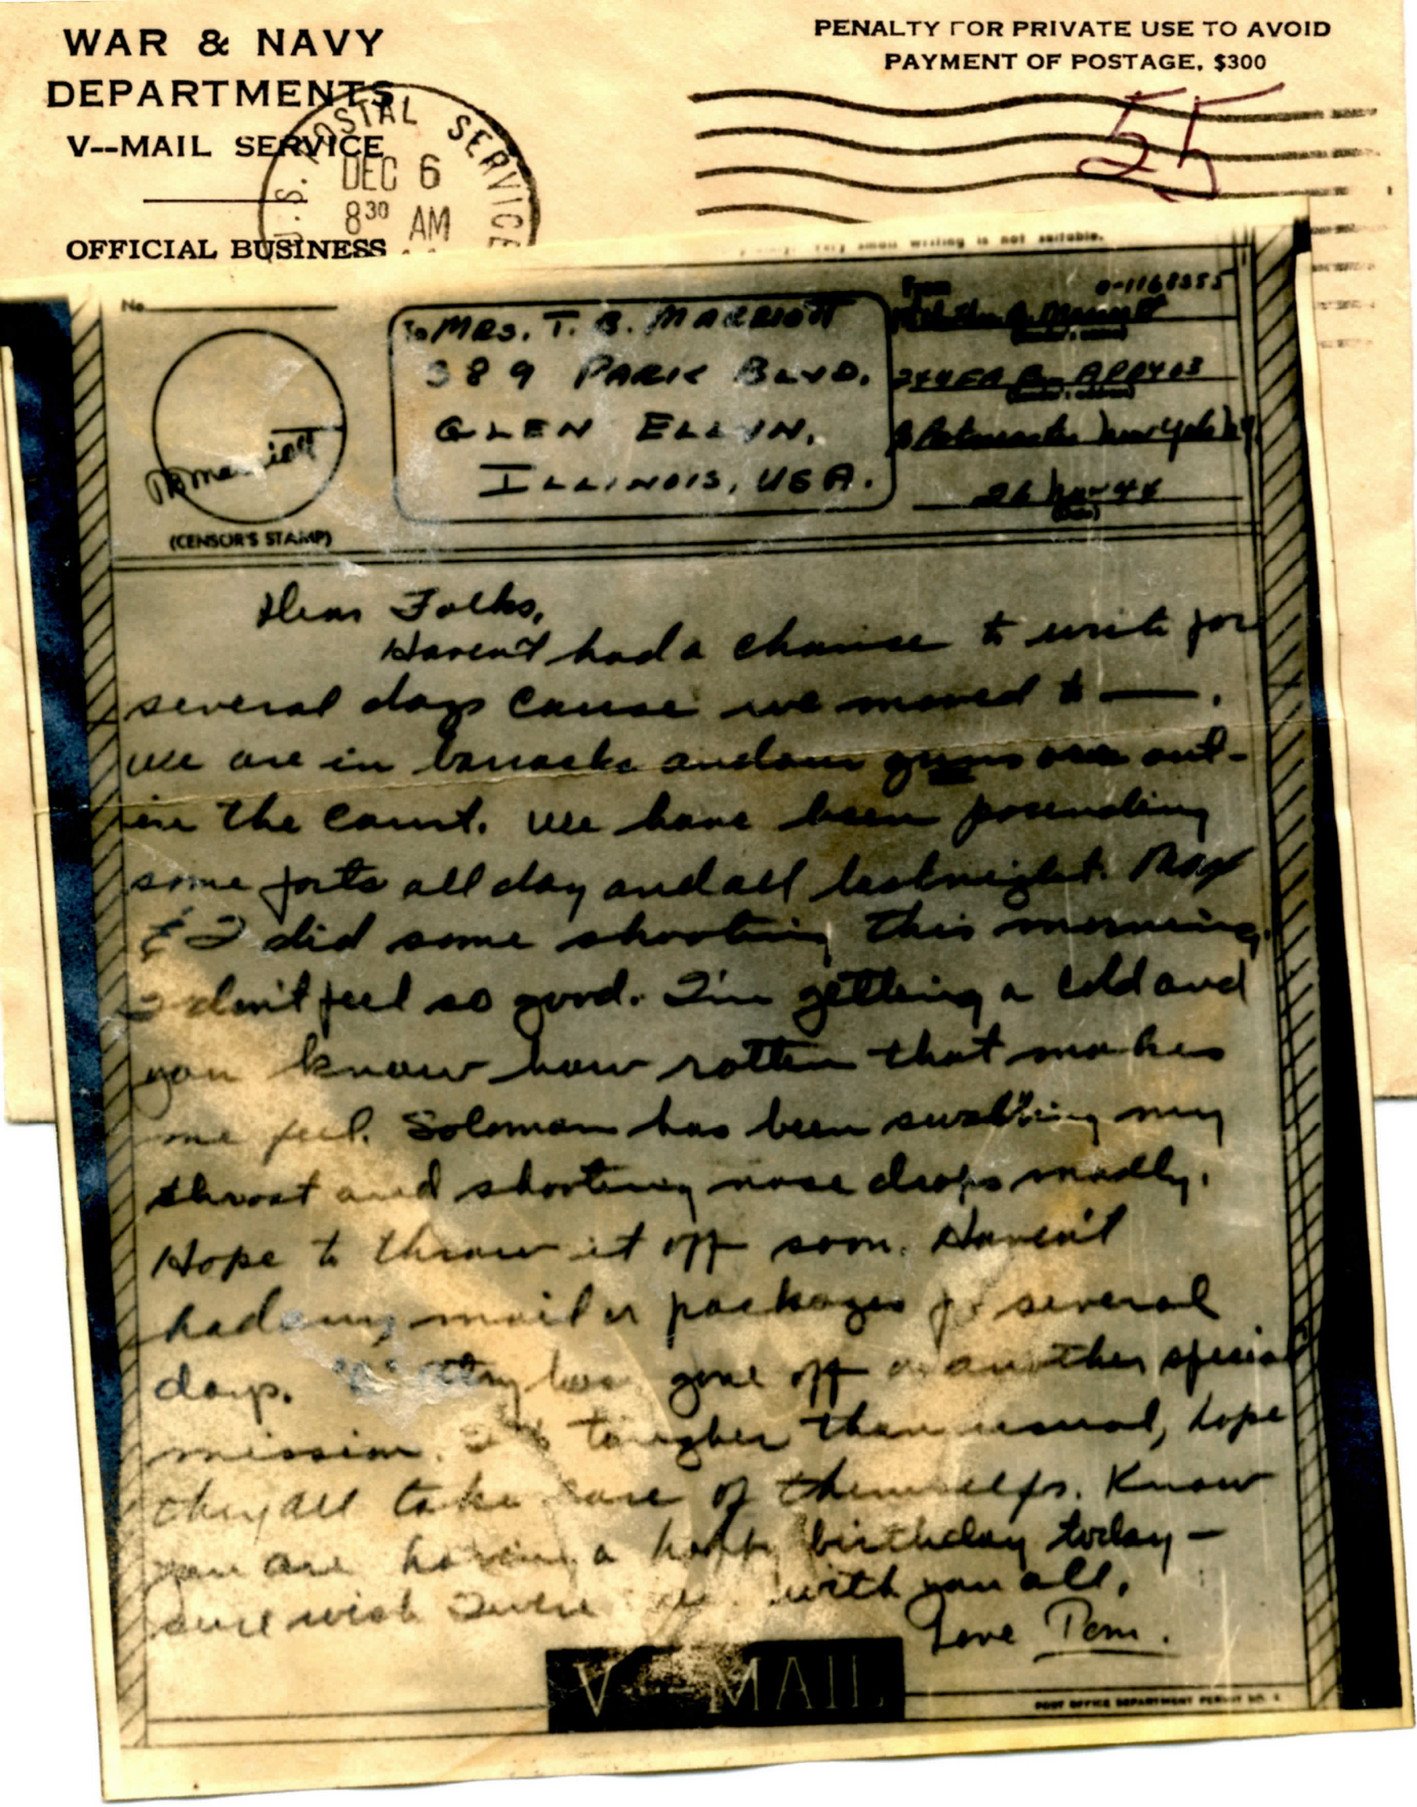 WAR & NAVY
DEPARTMENTS
V--MAIL SERVICE
OFFICIAL BUSINESS
U.S. POSTAL SERVICE
DEC 6
8 30 AM
PENALTY FOR PRIVATE USE TO AVOID
PAYMENT OF POSTAGE, $300
55
very small writing is not suitable.
No.
(CENSOR'S STAMP)
To MRS. T. B. MARRIOTT
389 PARK BLVD.
GLEN ELLYN,
ILLINOIS, USA.
From
O-1168385
244 FA Bn APO 403
Postmaster New York NY
26 Nov 44
(Date)
Dear Folks,
Haven't had a chance to write for
several days cause we moved to —.
We are in barracks and our guns are out-
in the court. We have been pounding
some forts all day and all last night. Max
& I did some shooting this morning.
I don't feel so good. I'm getting a cold and
you know how rotten that makes
me feel. Soloman has been swabbing my
throat and shooting nose drops madly.
Hope to throw it off soon. Haven't
had any mail or packages for several
days. has gone off on another special
mission. It's tougher than usual, hope
they all take care of themselfs. Know
you are having a happy birthday today —
sure wish I were with you all.
Love Tom.
V--MAIL
POST OFFICE DEPARTMENT PERMIT NO.